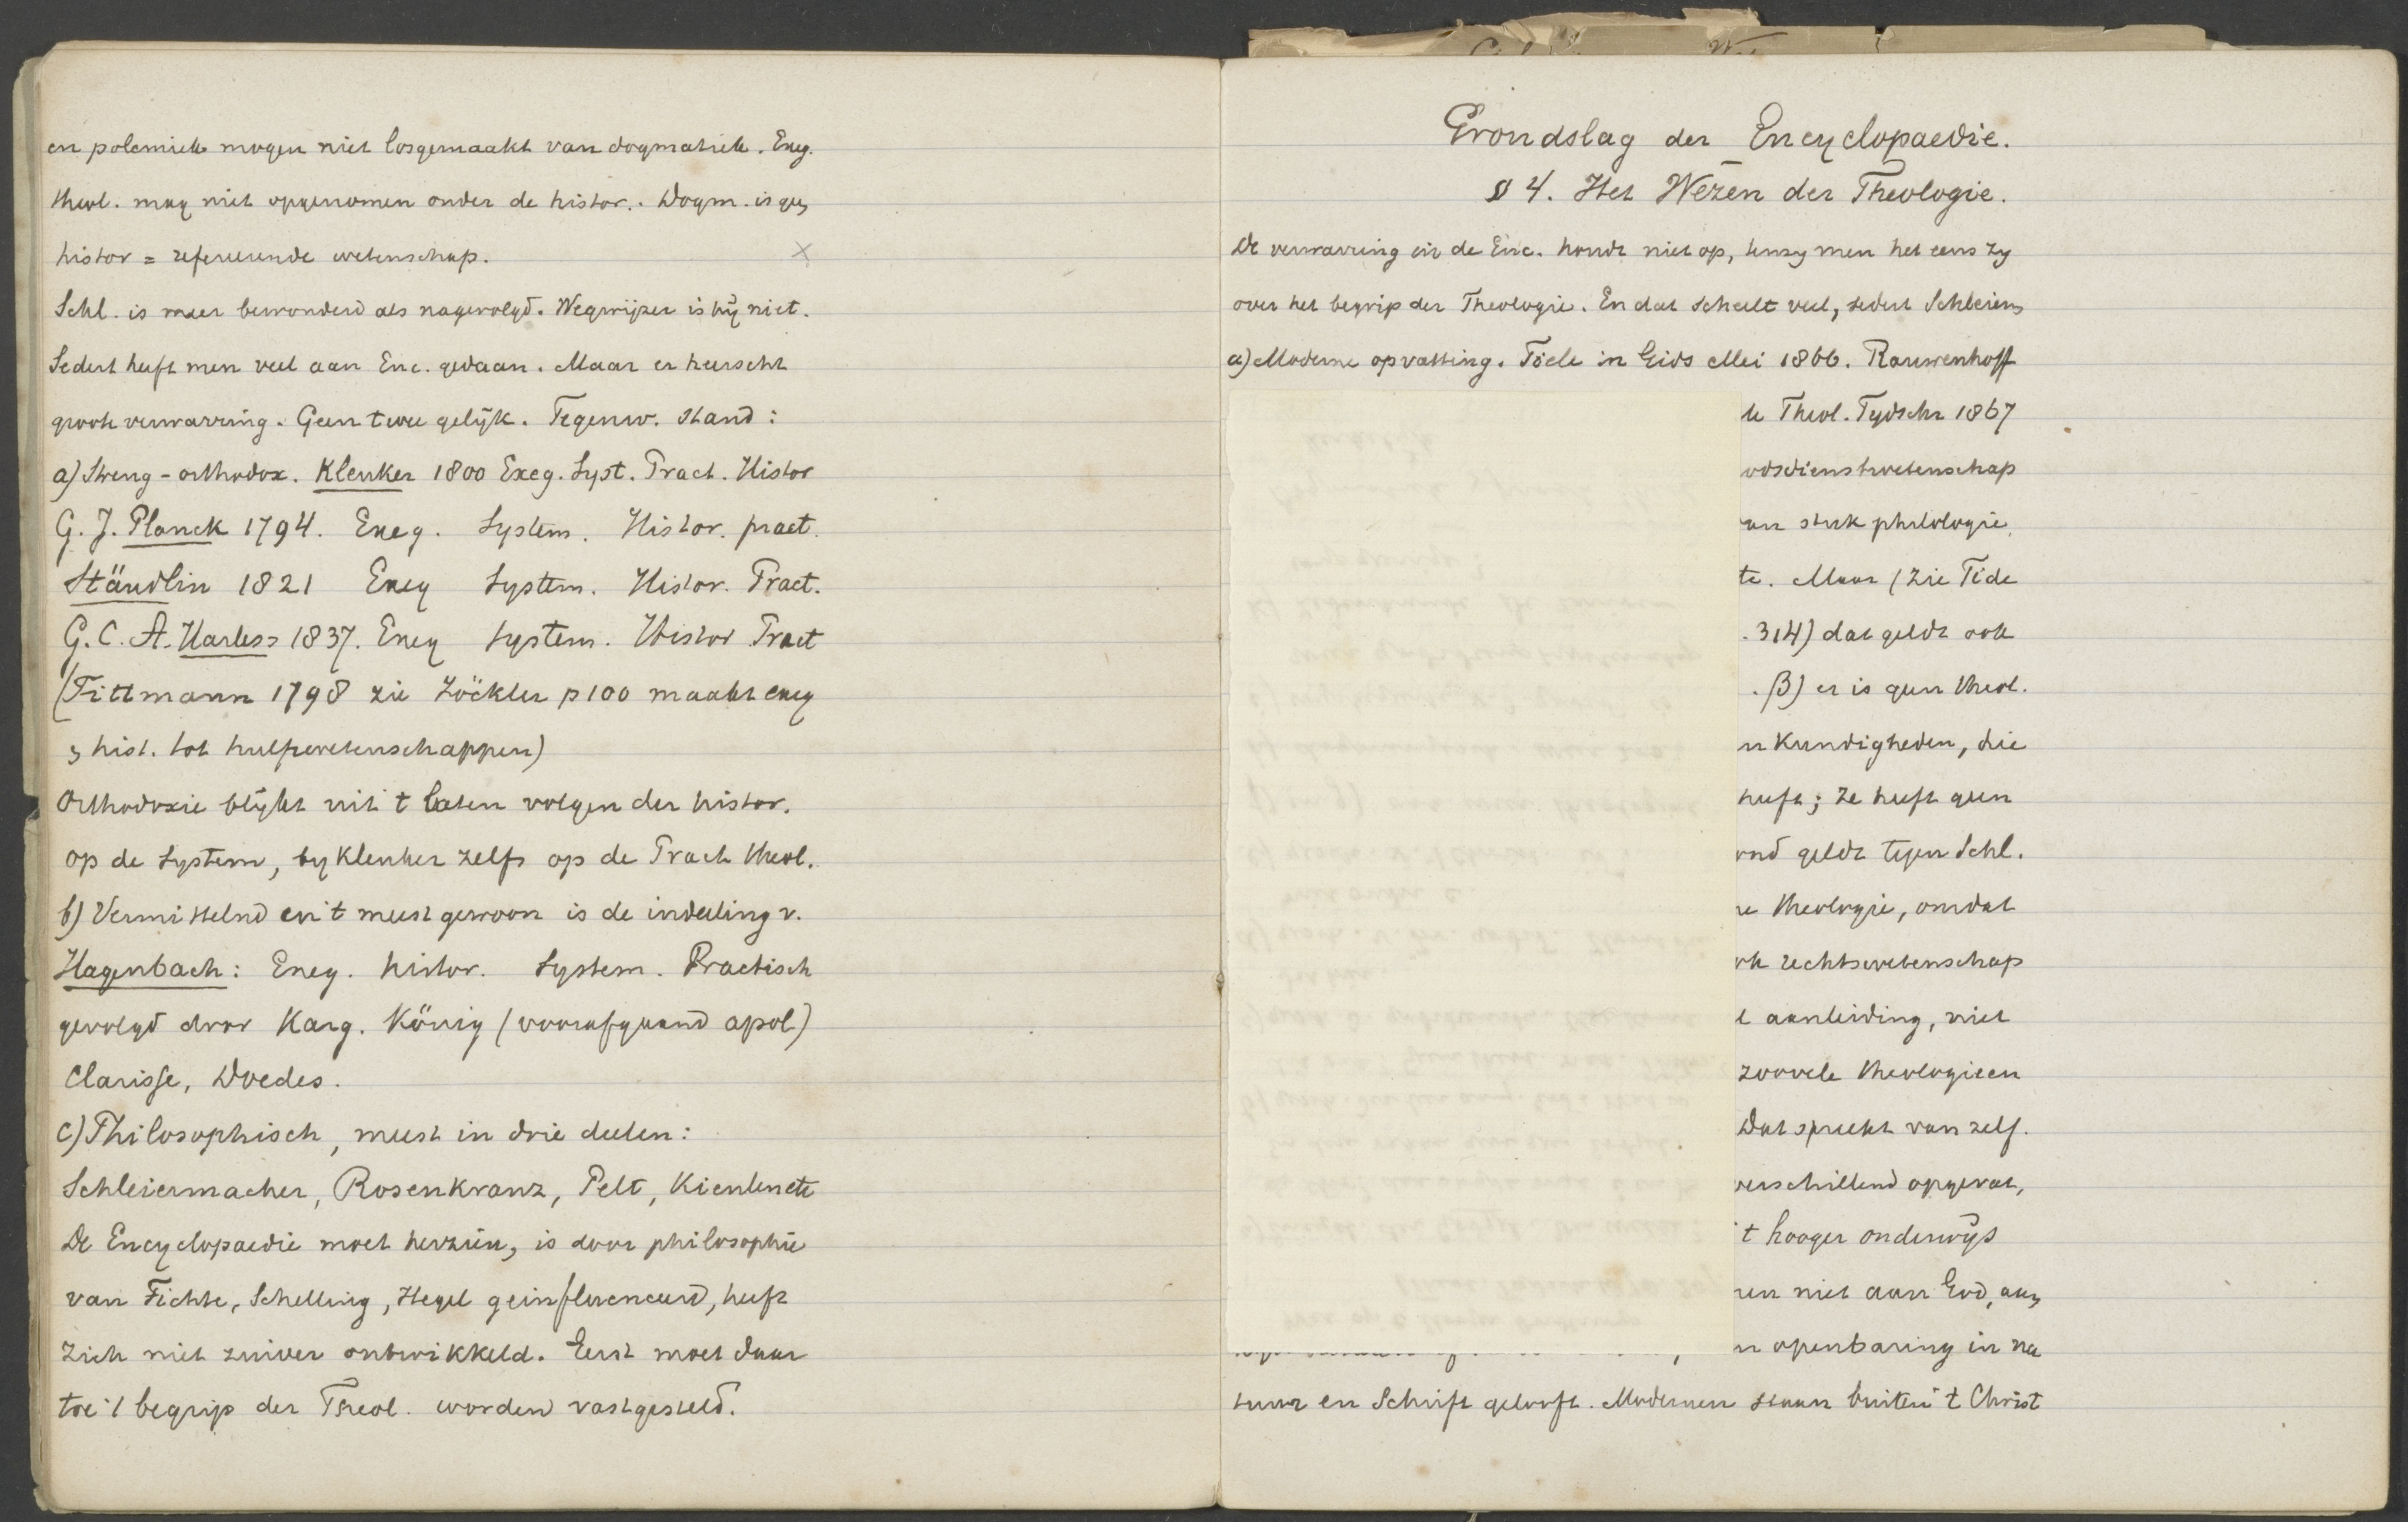 en polemiek mogen niet losgemaakt van dogmatiek. Exeg.
theol. mag niet opgenomen onder de histor.. Dogm. is geen
histor = refereerende wetenschap.
Schl. is meer bewonderd als nagevolgd. Wegwijzer is hij niet.
Sedert heeft men veel aan Enc. gedaan. Maar er heerscht
groote verwarring. Geen twee gelijk. Tegenw. stand:
a) Streng-orthodox. Kleuker 1800 Exeg. Syst. Pract. Histor
G. J. Planck 1794. Exeg. System. Histor. pract.
Stäudlin 1821 Exeg System. Histor. Pract.
G. C. A. Harless 1837. Exeg System. Histor Pract
(Tittmann 1798 zie Zöckler p 100 maakt exeg
en hist. tot hulpwetenschappen)
Orthodoxie blijkt uit 't laten volgen der histor.
op de System, by Kleuker zelfs op de Pract theol.
b) Vermittelnd en 't meest gewoon is de indeeling v.
Hagenbach: Exeg. histor. System. Practisch
gevolgd door Karg. König (voorafgaand apol)
Clarisse, Doedes.
c) Philosophisch, meest in drie deelen:
Schleiermacher, Rosenkranz, Pelt, Kienlen etc
De Encyclopaedie moet herzien, is door philosophie
van Fichte, Schelling, Hegel geinfluenceerd, heeft
zich niet zuiver ontwikkeld. Eerst moet daar
toe 't begrip der Theol. worden vastgesteld.
Grondslag der Encyclopaedie.
§ 4. Het Wezen der Theologie.
De verwarring in de Enc. houdt niet op, tenzy men het eens zy
over het begrip der Theologie. En dat scheelt veel, sedert Schleierm
a) Moderne opvatting. Tiele in Gids Mei 1866. Rauwenhoff
Theol. Tydschr 1867
odsdienstwetenschap
stuk philologie
te. Maar (zie Tiele
. 314) dat geldt ook
. β) er is geen theol.
n kundigheden, die
heeft; ze heeft geen
ond geldt tegen Schl.
e theologie, omdat
ok rechtswetenschap
t aanleiding, niet
zoovele theologieen
Dat spreekt van zelf.
verschillend opgevat,
't hooger onderwijs
ren niet aan God, aan
n openbaring in na
tuur en Schrift gelooft. Modernen staan buiten 't Christ